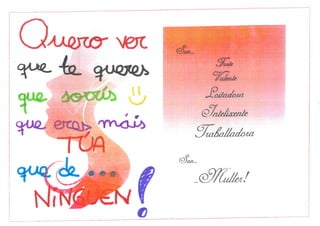 Quero ver
que te queres
que sorrís
que eras máis
TÚA
que de ...
NINGUEN!
Ser...
Forte
Valente
Loitadora
Intelixente
Traballadora
Ser...
...Muller!